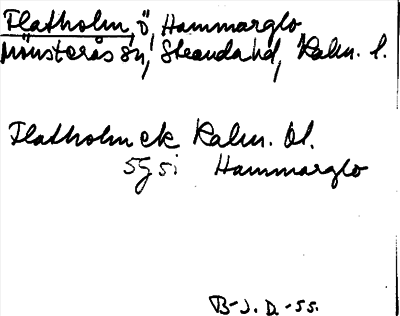 Flatholm, ö, Hammarglo
Mönsterås sn, Stranda hd, Kalm. l.
Flatholmck Kalm. bl.
5G 5i Hammarglo
B-J. D. -55.